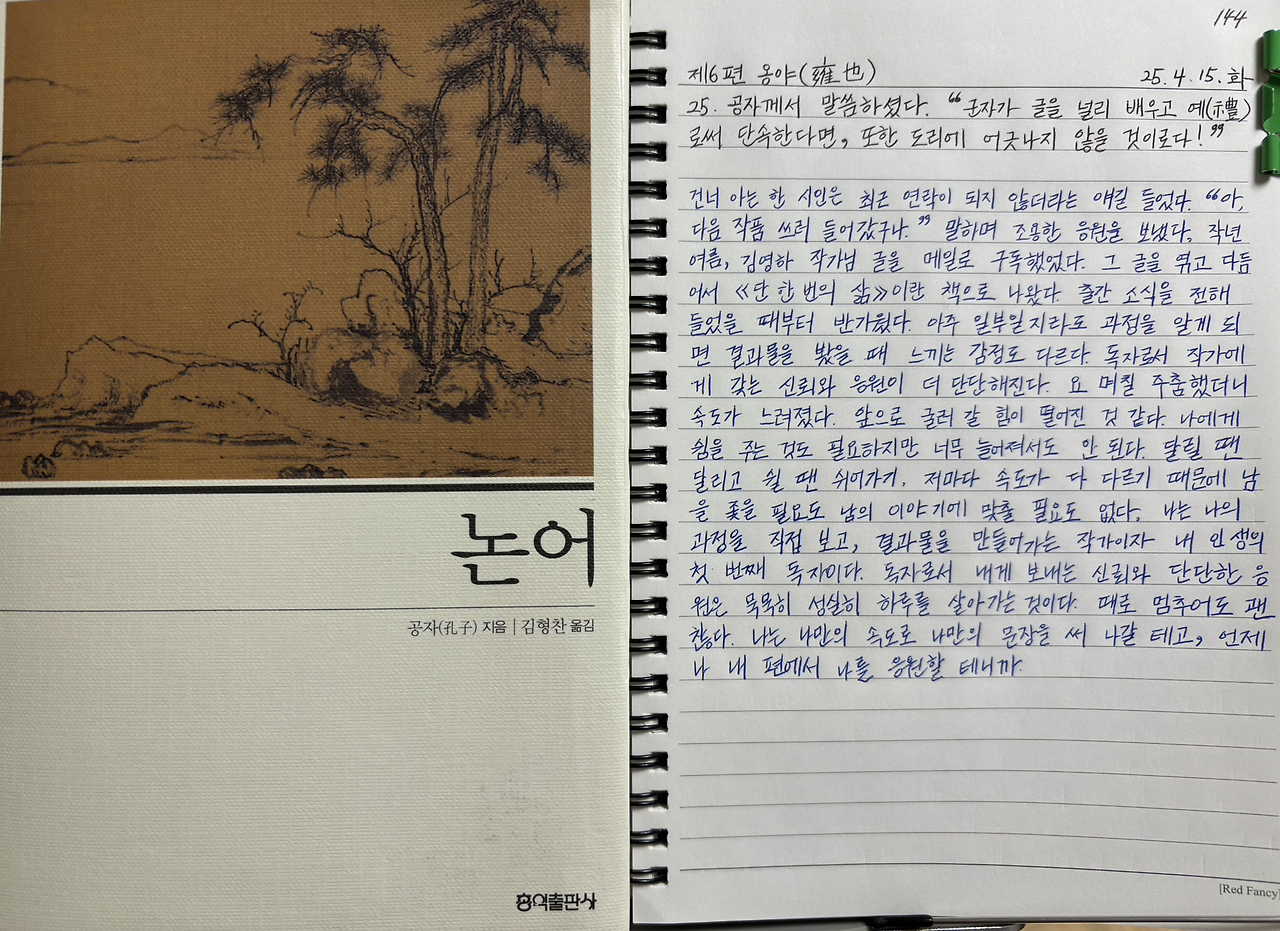 논어
공자(孔子) 지음 | 김형찬 옮김
홍익출판사
144
제6편 옹야(雍也) 25.4.15.화
25. 공자께서 말씀하셨다. "군자가 글을 널리 배우고 예(禮)
로써 단속한다면, 또한 도리에 어긋나지 않을 것이로다!"
건너 아는 한 시인은 최근 연락이 되지 않더라는 얘길 들었다. "아,
다음 작품 쓰러 들어갔구나." 말하며 조용한 응원을 보냈다. 작년
여름, 김영하 작가님 글을 메일로 구독했었다. 그 글을 엮고 다듬
어서 《단 한 번의 삶》이란 책으로 나왔다. 출간 소식을 전해
들었을 때부터 반가웠다. 아주 일부일지라도 과정을 알게 되
면 결과물을 봤을 때 느끼는 감정도 다르다. 독자로서 작가에
게 갖는 신뢰와 응원이 더 단단해진다. 요 며칠 주춤했더니
속도가 느려졌다. 앞으로 굴러 갈 힘이 떨어진 것 같다. 나에게
쉼을 주는 것도 필요하지만 너무 늘어져서도 안 된다. 달릴 땐
달리고 쉴 땐 쉬어가기. 저마다 속도가 다 다르기 때문에 남
을 좇을 필요도 남의 이야기에 맞출 필요도 없다. 나는 나의
과정을 직접 보고, 결과물을 만들어가는 작가이자 내 인생의
첫 번째 독자이다. 독자로서 내게 보내는 신뢰와 단단한 응
원은 묵묵히 성실히 하루를 살아가는 것이다. 때로 멈추어도 괜
찮다. 나는 나만의 속도로 나만의 문장을 써 나갈 테고, 언제
나 내 편에서 나를 응원할 테니까.
[Red Fancy]